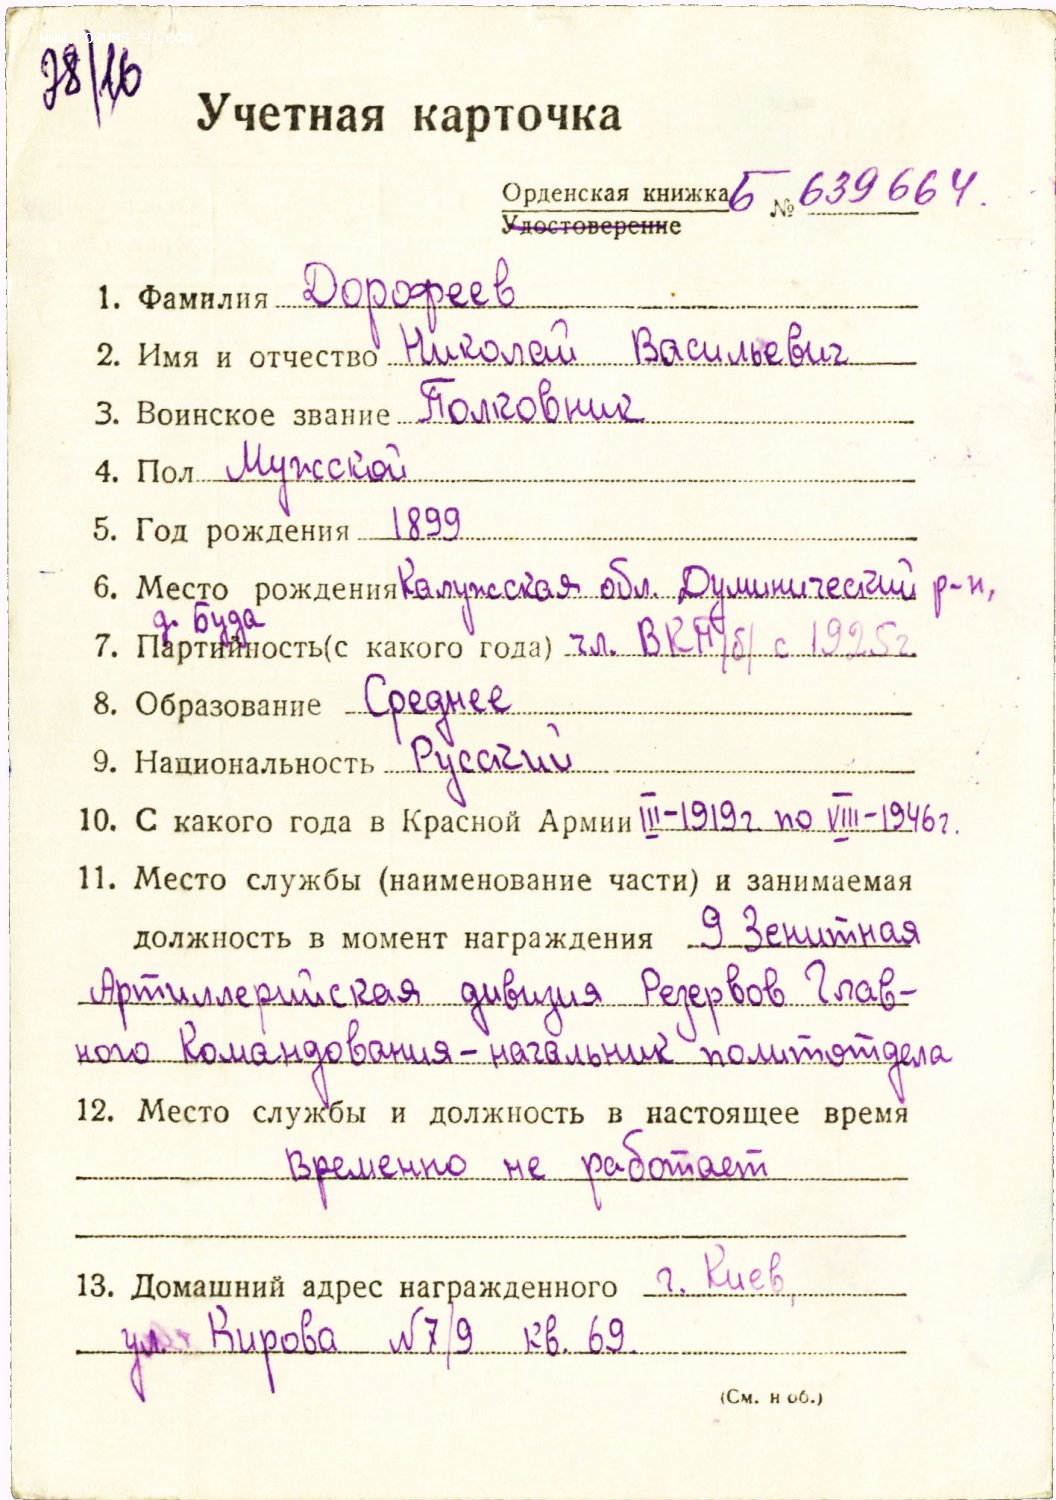 WWW.FORUMS-SU.COM
78/16
Учетная карточка
Орденская книжка Б № 639664.
Удостоверение
1. Фамилия Дорофеев
2. Имя и отчество Николай Васильевич
3. Воинское звание Полковник
4. Пол Мужской
5. Год рождения 1899
6. Место рождения Калужская обл. Думинический р-н,
д. Буда
7. Партийность (с какого года) чл. ВКП/б/ с 1925г.
8. Образование Среднее
9. Национальность Русский
10. С какого года в Красной Армии III-1919г. по VIII-1946г.
11. Место службы (наименование части) и занимаемая
должность в момент награждения 9 Зенитная
Артиллерийская дивизия Резервов Глав-
ного Командования - начальник политотдела
12. Место службы и должность в настоящее время
Временно не работает
13. Домашний адрес награжденного г. Киев,
ул. Кирова N7/9 кв. 69.
(См. н об.)